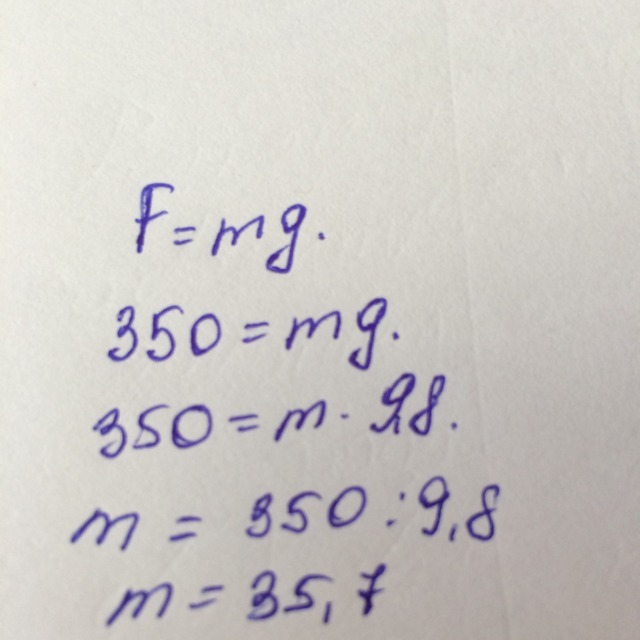 F = mg.
350 = mg.
350 = m · 9,8.
m = 350 : 9,8
m = 35,7